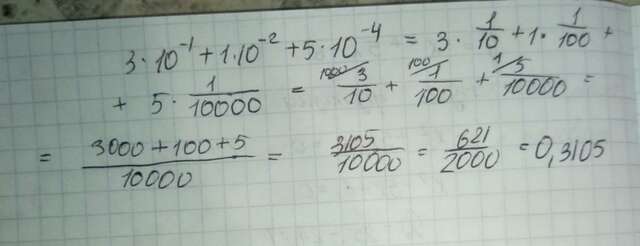 3·10⁻¹+1·10⁻²+5·10⁻⁴ = 3·1/10+1·1/100+
+ 5·1/10000 = ¹⁰⁰⁰3/10 + ¹⁰⁰1/100 + ¹5/10000 =
= (3000+100+5)/10000 = 3105/10000 = 621/2000 = 0,3105